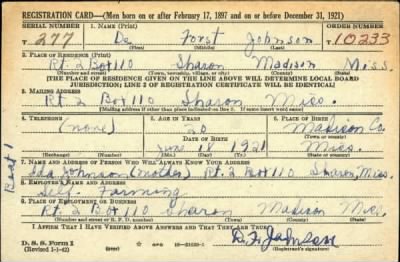 REGISTRATION CARD—(Men born on or after February 17, 1897 and on or before December 31, 1921)
SERIAL NUMBER 1. NAME (Print) ORDER NUMBER
T 277 De Forst Johnson 10233
(First) (Middle) (Last)
2. PLACE OF RESIDENCE (Print)
Rt. 2 Box 110 Sharon Madison Miss.
(Number and street) (Town, township, village, or city) (County) (State)
[THE PLACE OF RESIDENCE GIVEN ON THE LINE ABOVE WILL DETERMINE LOCAL BOARD
JURISDICTION; LINE 2 OF REGISTRATION CERTIFICATE WILL BE IDENTICAL]
3. MAILING ADDRESS
Rt 2 Box 110 Sharon Miss.
[Mailing address if other than place indicated on line 2. If same insert word same]
4. TELEPHONE 5. AGE IN YEARS 6. PLACE OF BIRTH
(none) 20 Madison Co.
DATE OF BIRTH (Town or county)
June 18 1921 Miss.
(Exchange) (Number) (Mo.) (Day) (Yr.) (State or country)
7. NAME AND ADDRESS OF PERSON WHO WILL ALWAYS KNOW YOUR ADDRESS
Ida Johnson (mother) Rt. 2 Box 110 Sharon, Miss.
8. EMPLOYER'S NAME AND ADDRESS
Self- Farming
9. PLACE OF EMPLOYMENT OR BUSINESS
Rt 2 Box 110 Sharon Madison Miss.
(Number and street or R. F. D. number) (Town) (County) (State)
I AFFIRM THAT I HAVE VERIFIED ABOVE ANSWERS AND THAT THEY ARE TRUE.
D. S. S. Form 1
(Revised 1-1-42) (over)
D. F. Johnson
(Registrant's signature)